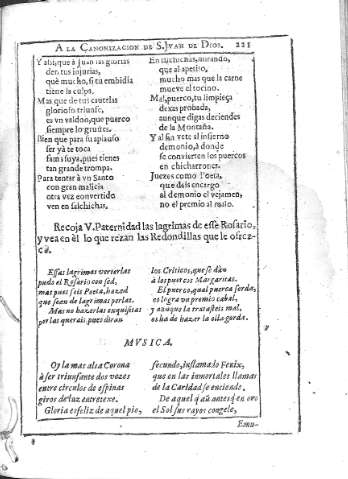 A LA CANONIZACION DE S. JVAN DE DIOS. 221
Y assi, que à Juan las glorias
den tus injurias,
què mucho, si tu embidia
tiene la culpa.
Mas que de tus cautelas
glorioso triunfe,
es vn valdon, que puerco
siempre lo gruñes.
Bien que para su aplauso
ser yà te toca
fama suya, pues tienes
tan grande trompa.
Para tentar à vn Santo
con gran malicia
otra vez convertido
ven en salchichas.
En tus luchas, mirando,
que al apetito,
mucho mas que la carne
mueve el tocino.
Mal, puerco, tu limpieça
dexas probada,
aunque digas deciendes
de la Montaña.
Y al fin vete al infierno
demonio, à donde
se convierten los puercos
en chicharrones.
Juezes como Poeta,
que dèis encargo
al demonio el vejamen,
no el premio al malo.
Recoja V. Paternidad las lagrimas de esse Rosario,
y vea en èl lo que rezan las Redondillas que le ofrez-
ca.
Essas lagrimas verterlas
pudo el Rosario con sed,
mas pues sois Poeta, hazed
que sean de lagrimas perlas.
Mas no hazerlas exquisitas
por las querais pues diràn
los Criticos, que se dàn
à los puercos Margaritas.
El puerco, qual puerca sorda,
os logra vn premio cabal,
y aunque la tratasteis mal,
os ha de hazer la olla gorda.
MVSICA.
Oy la mas alta Corona
à ser triunfante dos vezes
entre circulos de espinas
giros de luz entretexe.
Gloria es feliz de aquel pie,
secundo, inflamado Fenix,
que en las inmortales llamas
de la Caridad se enciende.
De aquel que aun antes que en oro
el Sol sus rayos congele,
Emu-